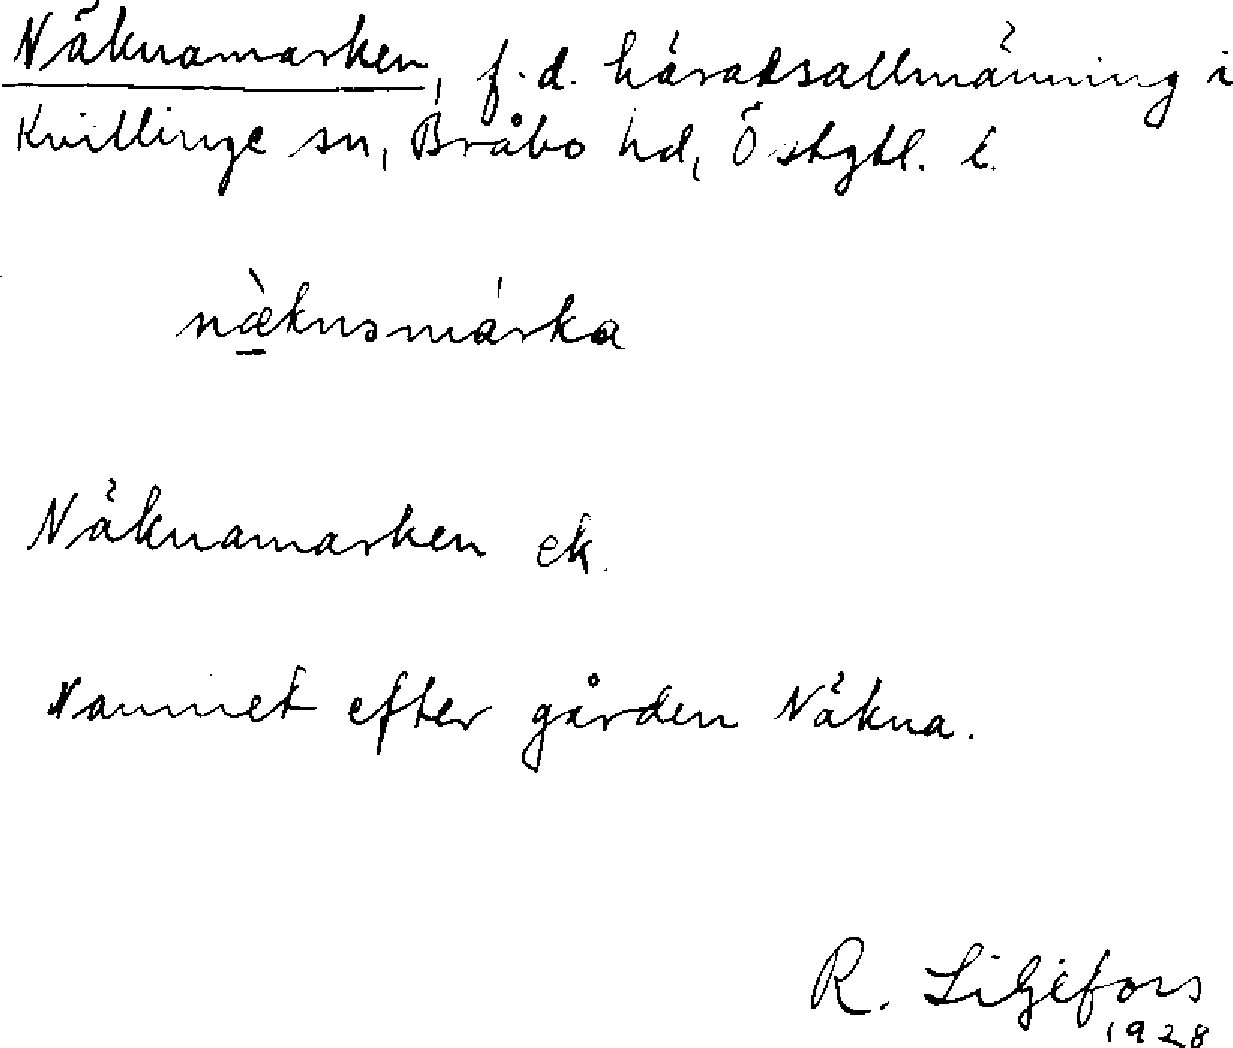 Näknamarken, f.d. häradsallmänning i
Kvillinge sn, Bråbo hd, Östgtl. l.
næ̀knəmárka
Näknamarken ek.
Namnet efter gården Näkna.
R. Liljefors
1928